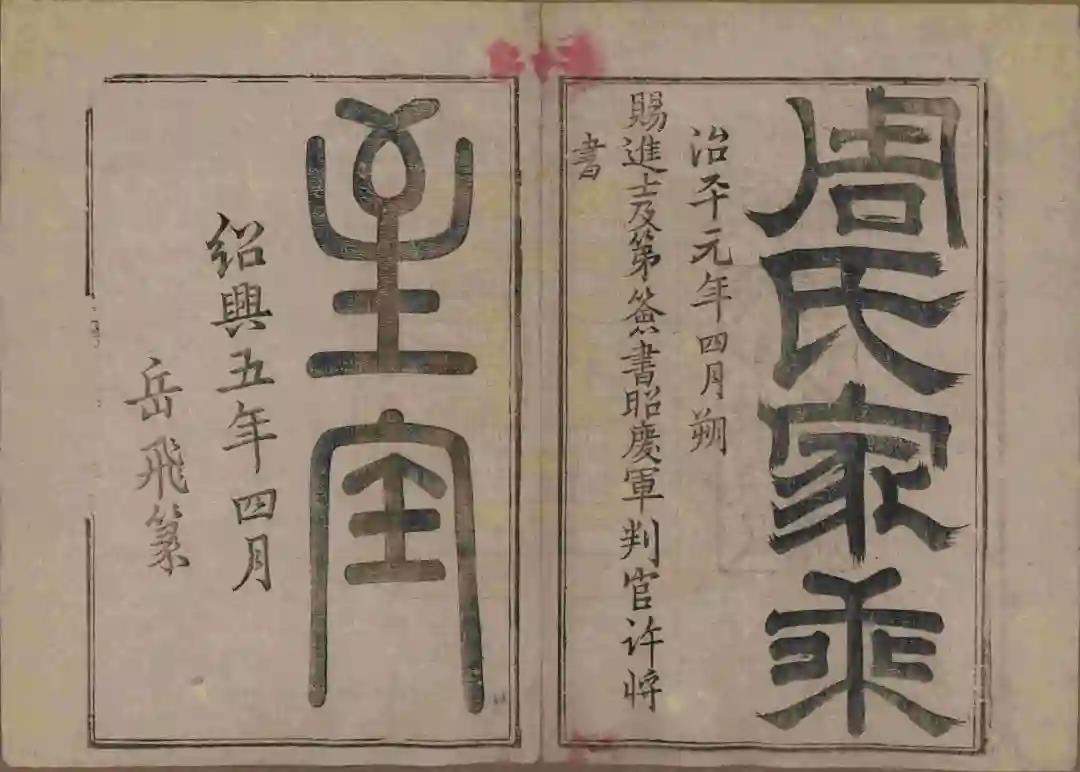 周氏家乘
治平元年四月朔
賜進士及第簽書昭慶軍判官许將
書
至宝
紹興五年四月
岳飛篆